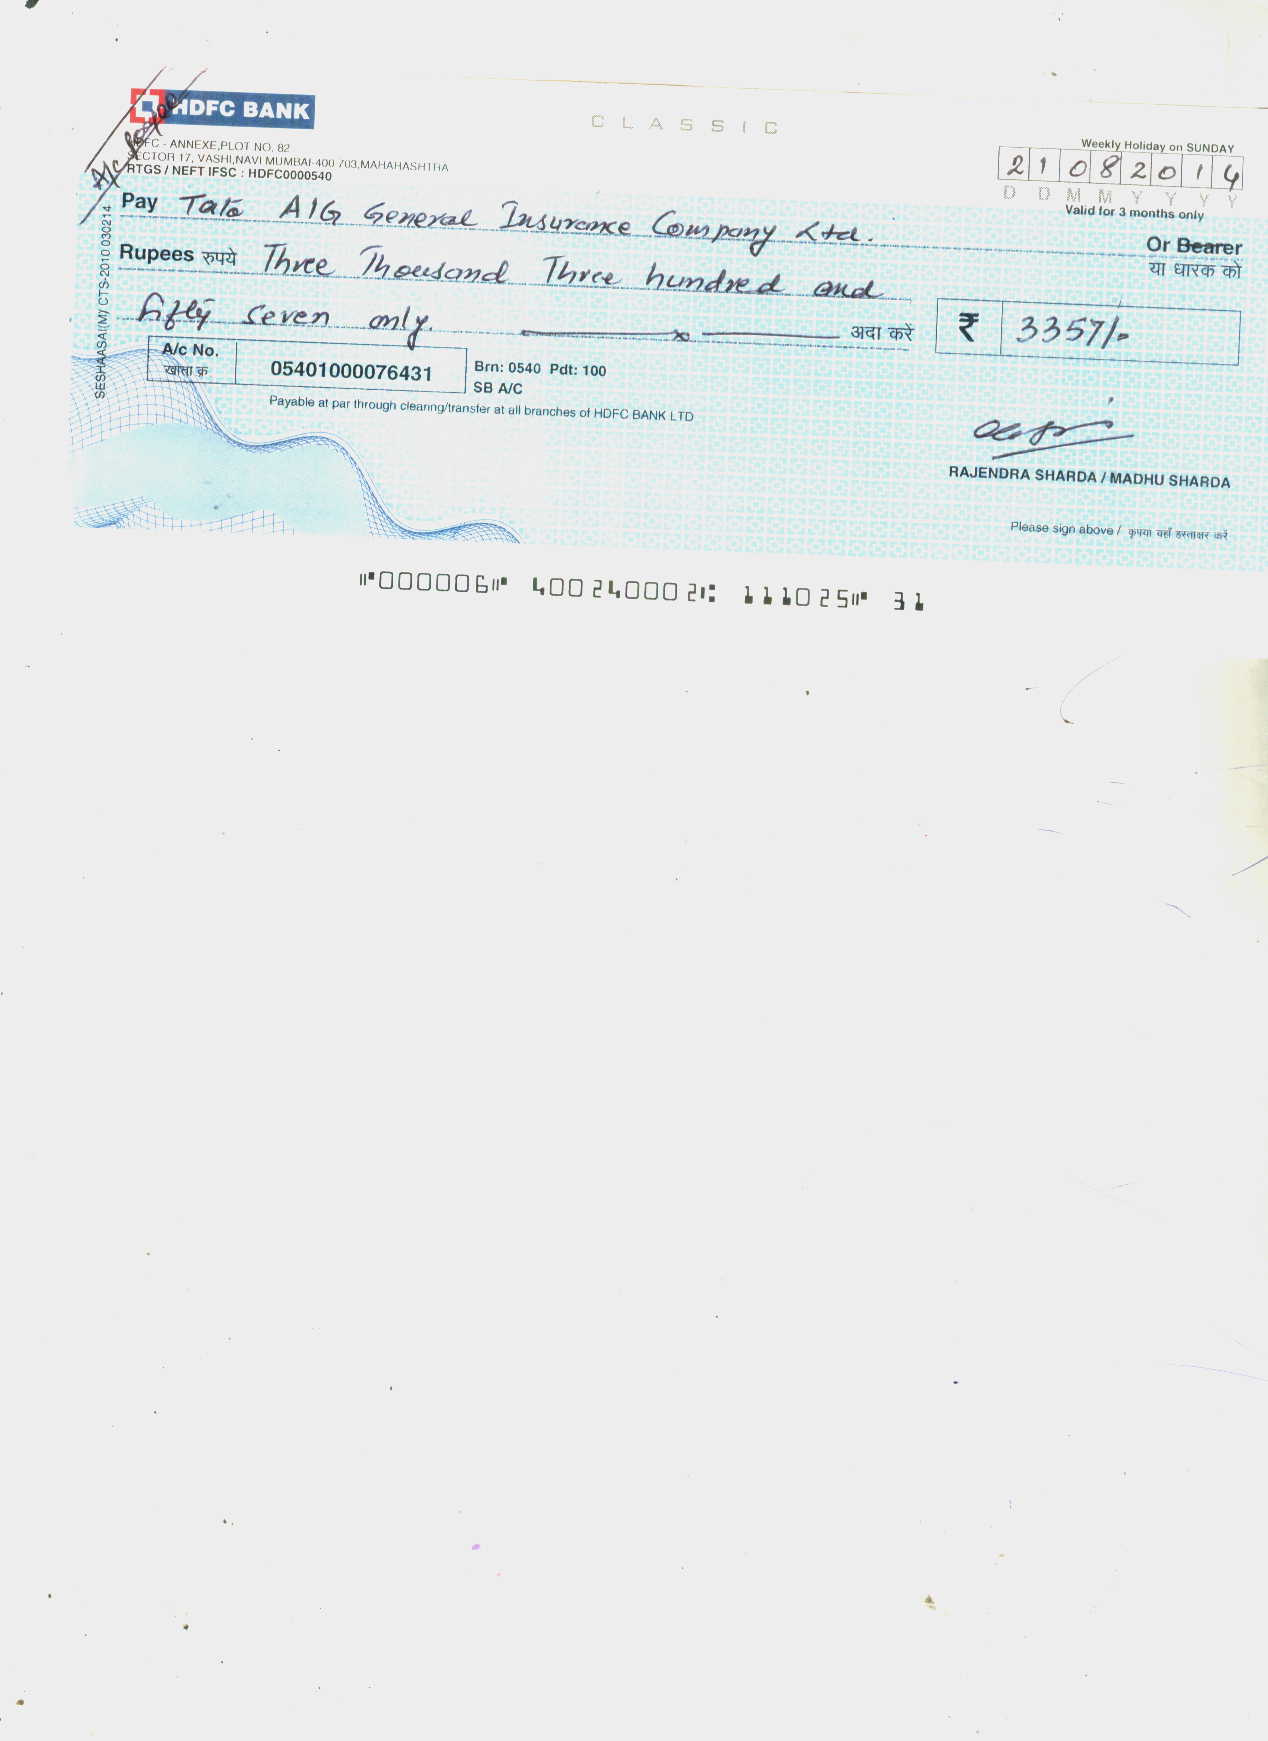 A/c payee
HDFC BANK
CLASSIC
HDFC - ANNEXE,PLOT NO. 82
SECTOR 17, VASHI,NAVI MUMBAI-400 703,MAHAHASHTRA
RTGS / NEFT IFSC : HDFC0000540
Weekly Holiday on SUNDAY
21082014
D D M M Y Y Y Y
Valid for 3 months only
Pay Tata AIG General Insurance Company Ltd.
Or Bearer
या धारक को
Rupees रुपये Three Thousand Three hundred and
fifty seven only. x अदा करें ₹ 3357/-
A/c No.
खाता क्र
05401000076431
Brn: 0540 Pdt: 100
SB A/C
Payable at par through clearing/transfer at all branches of HDFC BANK LTD
SESHAASAI(M)/ CTS-2010 030214
RAJENDRA SHARDA / MADHU SHARDA
Please sign above / कृपया यहाँ हस्ताक्षर करें
⑈000006⑈ 400240002⑆ 111025⑈ 31